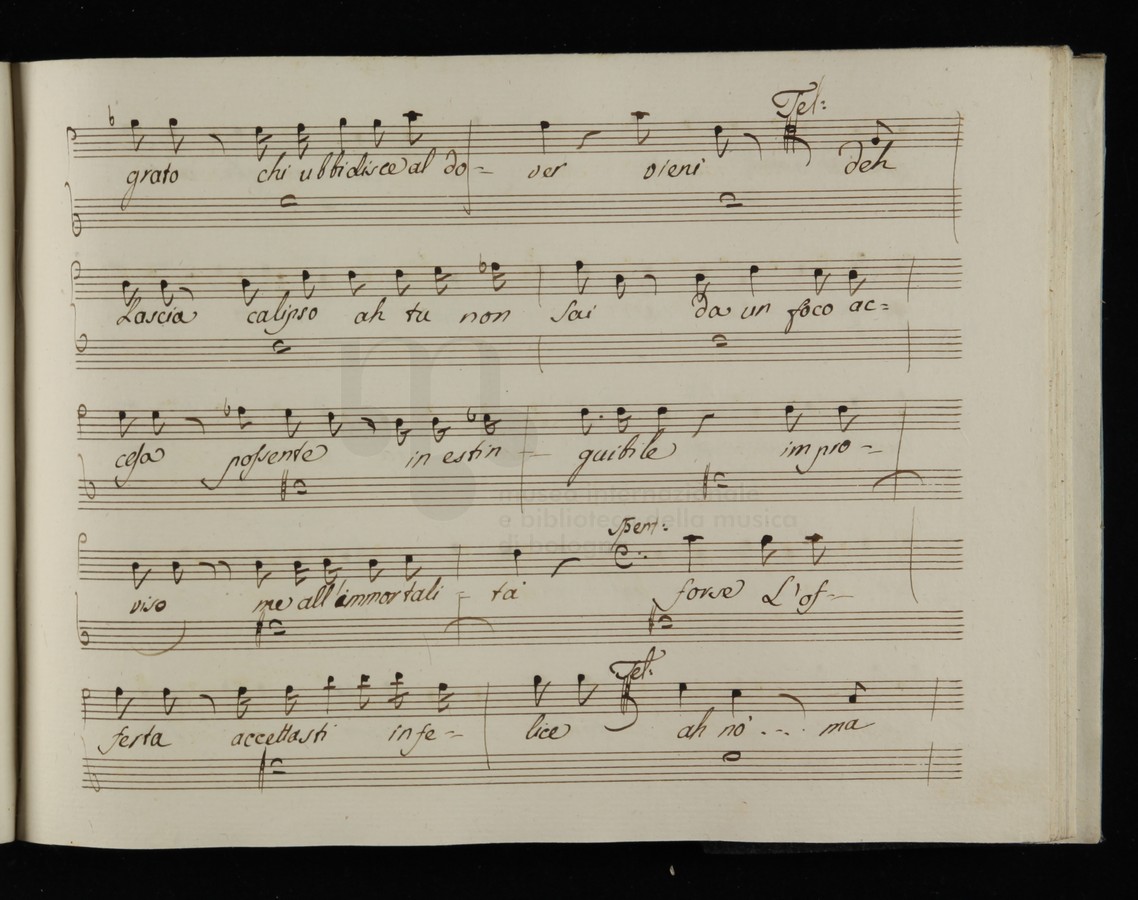 Tel:
grato chi ubbidisce al do= ver vieni deh
Lascia calipso ah tu non sai da un foco ac=
cesa possente in estin - guibile impro=
museo internazionale
e biblioteca della musica
di bologna
Spent:
viso me all'immortali = tà forse L'of=
Tel:
ferta accettasti infe= lice ah nò ... ma